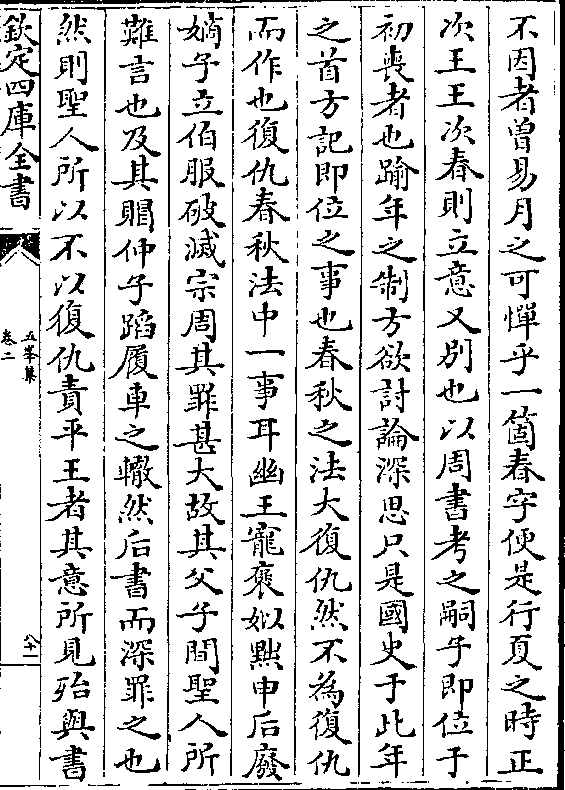 不因者曽易月之可憚乎一箇春字便是行夏之時正
次王王次春則立意又别也以周書考之嗣子即位于
初喪者也踰年之制方欲討論深思只是國史于此年
之首方記即位之事也春秋之法大復仇然不為復仇
而作也復仇春秋法中一事耳幽王寵褒姒黜申后廢
嫡子立伯服破滅宗周其罪甚大故其父子間聖人所
難言也及其賵仲子蹈履車之轍然后書而深罪之也
然則聖人所以不以復仇責平王者其意所見殆與書
欽定四庫全書
五峯集
卷二
八十一